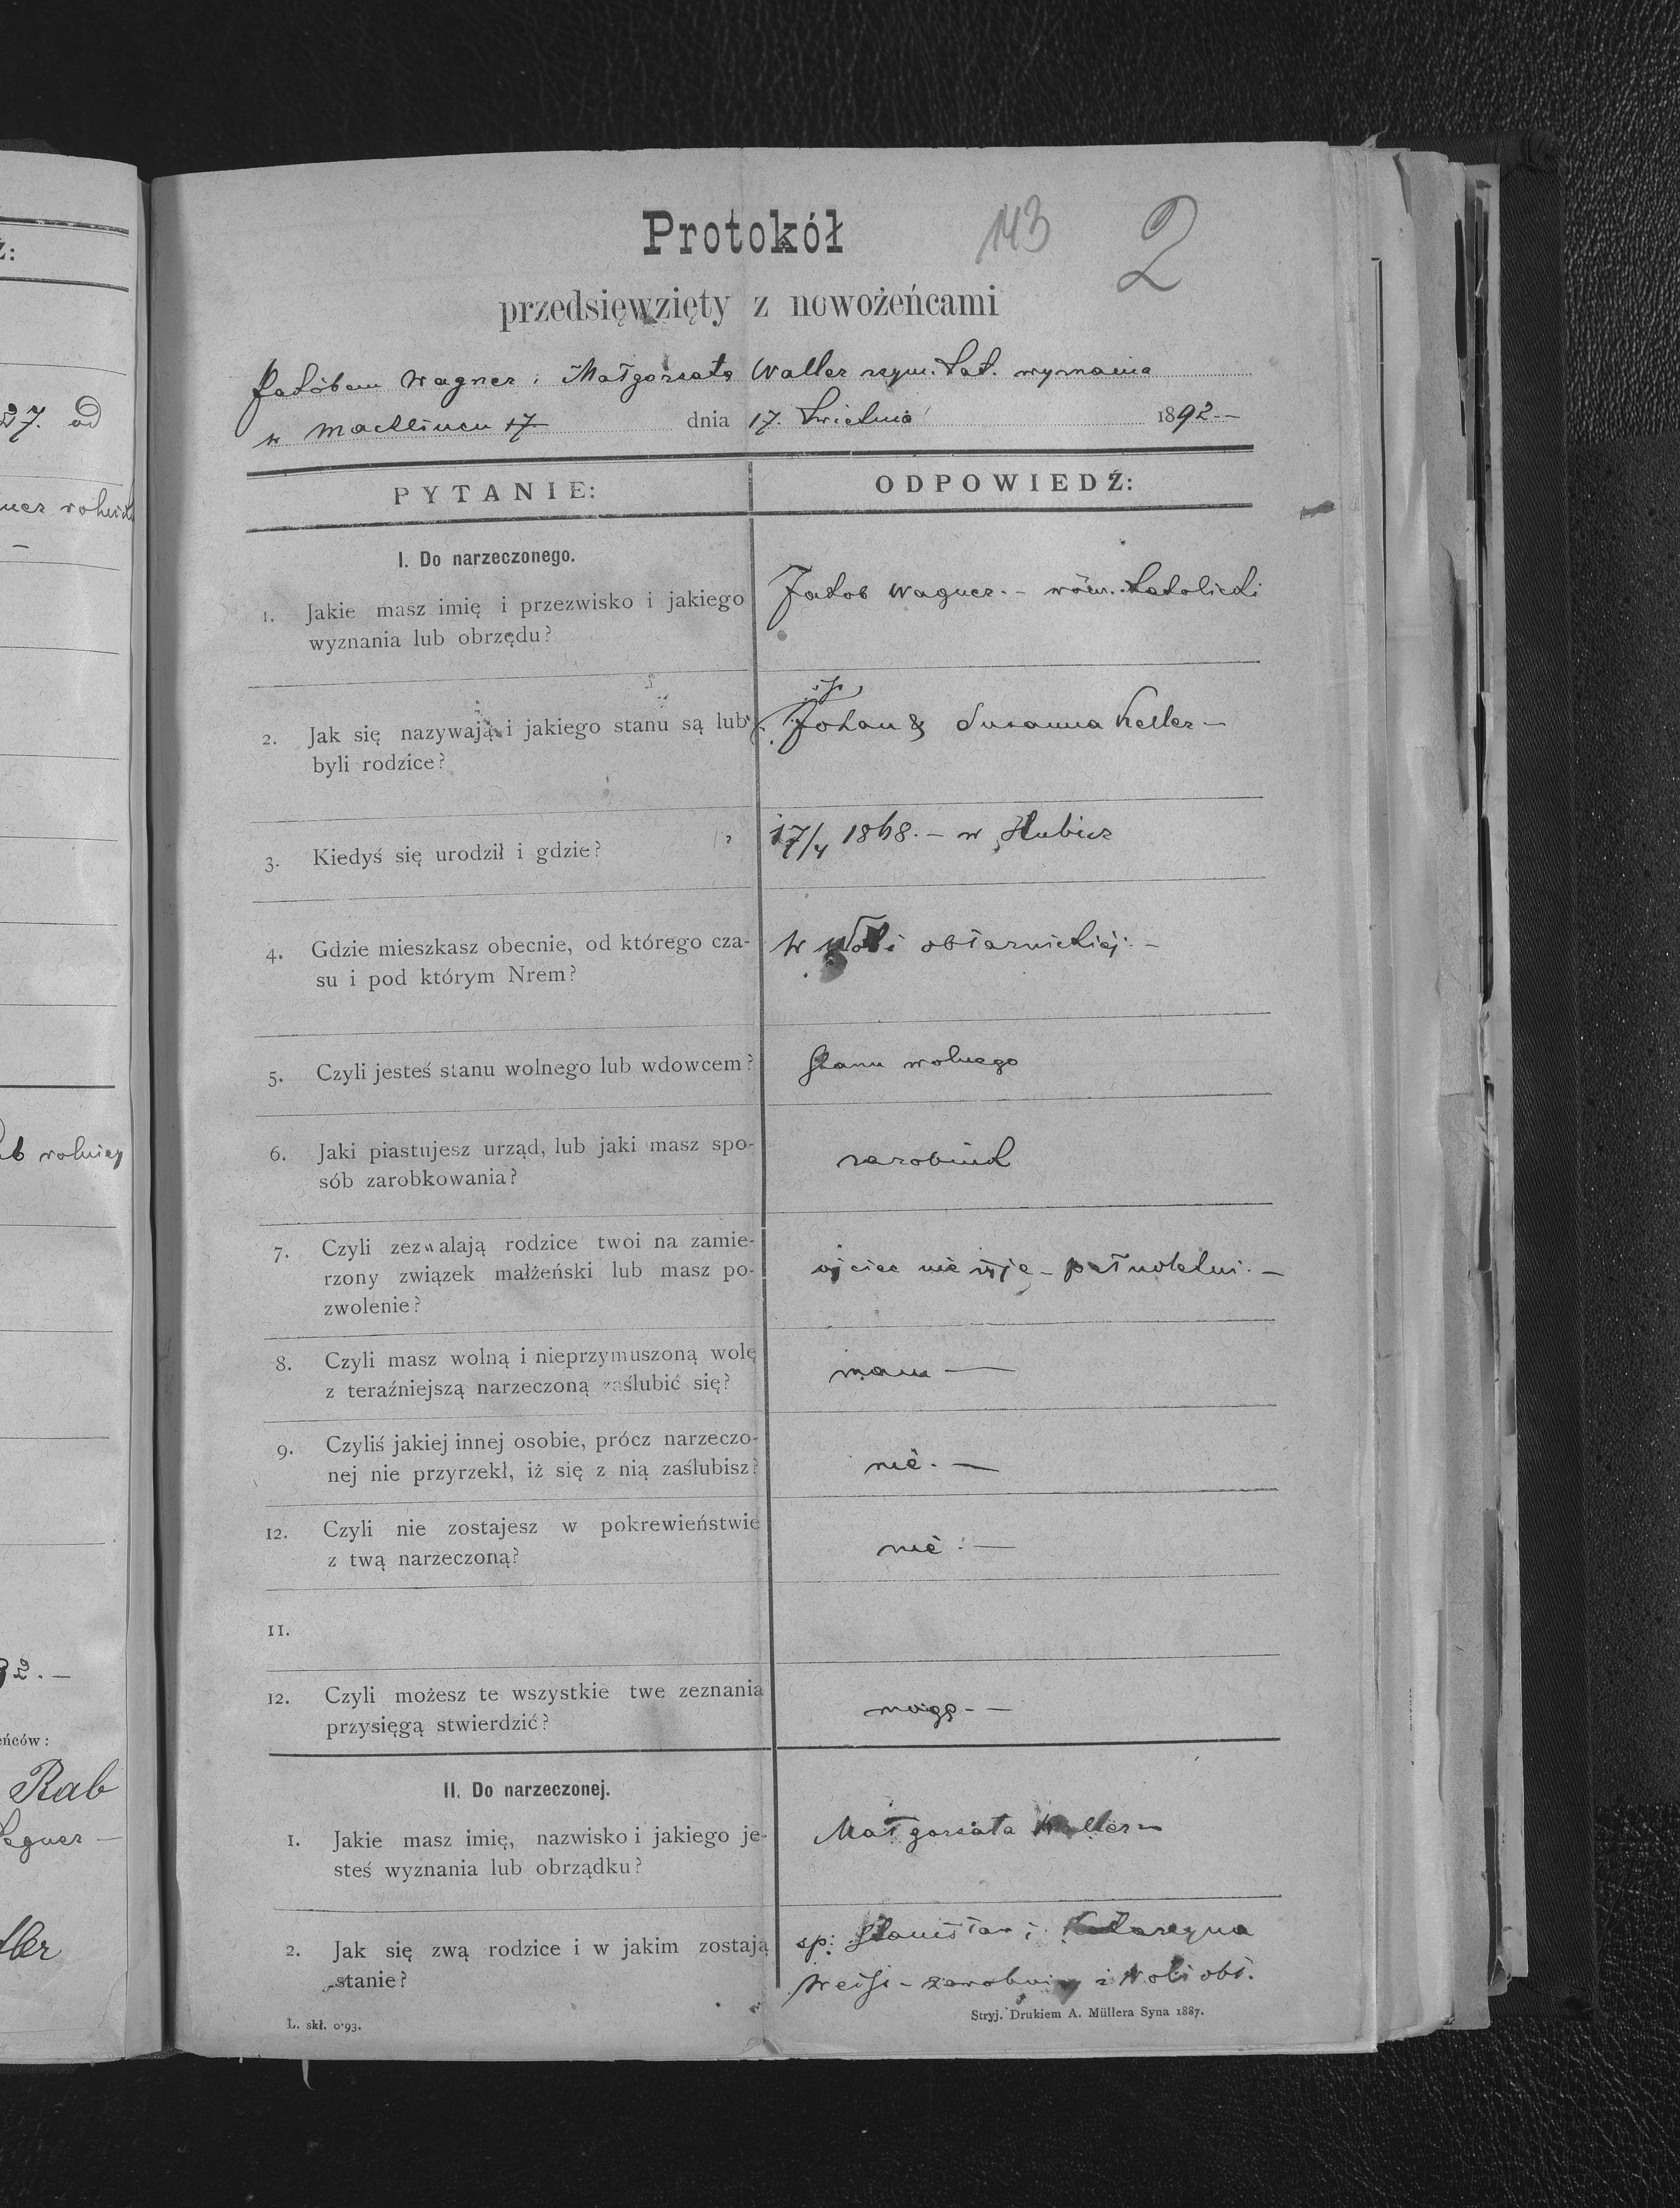 Protokół 143 2
przedsięwzięty z nowożeńcami
Jakóbem Wagner i Małgorzatą Waller rzym. kat. wyznania
w Machlincu 17 dnia 17. Kwietnia 1892.-
PYTANIE: ODPOWIEDŹ:
I. Do narzeczonego.
1. Jakie masz imię i przezwisko i jakiego
wyznania lub obrzędu?
Jakob Wagner.- katolicki
2. Jak się nazywają i jakiego stanu są lub
byli rodzice?
Johan & Susanna Keller -
3. Kiedyś się urodził i gdzie?
17/4 1868. - w Hubicz
4. Gdzie mieszkasz obecnie, od którego cza-
su i pod którym Nrem?
w Woli obłaznickiej. -
5. Czyli jesteś stanu wolnego lub wdowcem?
Stanu wolnego
6. Jaki piastujesz urząd, lub jaki masz spo-
sób zarobkowania?
zarobnik
7. Czyli zezwalają rodzice twoi na zamie-
rzony związek małżeński lub masz po-
zwolenie?
ojciec nie żyje - pełnoletni. -
8. Czyli masz wolną i nieprzymuszoną wolę
z teraźniejszą narzeczoną zaślubić się?
mam -
9. Czyliś jakiej innej osobie, prócz narzeczo-
nej nie przyrzekł, iż się z nią zaślubisz?
nie. -
12. Czyli nie zostajesz w pokrewieństwie
z twą narzeczoną?
nie. -
11.
12. Czyli możesz te wszystkie twe zeznania
przysięgą stwierdzić?
mogę - -
II. Do narzeczonej.
1. Jakie masz imię, nazwisko i jakiego je-
steś wyznania lub obrządku?
Małgorzata Waller -
2. Jak się zwą rodzice i w jakim zostają
stanie?
sp: Stanisław i Katarzyna
Weiss - z Woli obł.
L. skł. 0·93.
Stryj. Drukiem A. Müllera Syna 1887.
27. od
32. -
eńców:
Rab